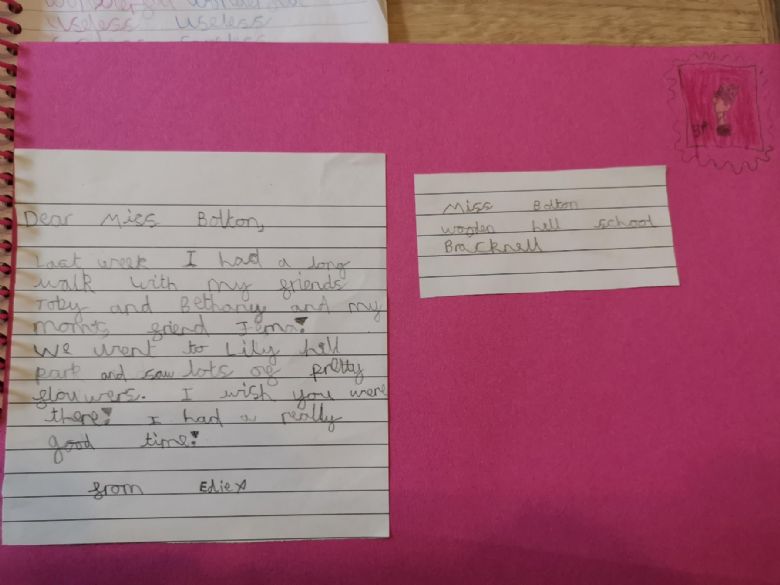 useless useless
Dear Miss Bolton,
Last week I had a long
walk with my friends
Toby and Bethany and my
mom's friend Jema!
We went to Lily hill
park and saw lots of pretty
flouwers. I wish you were
there! I had a really
good time!
from Edie x
Miss Bolton
wooden hill school
Bracknell